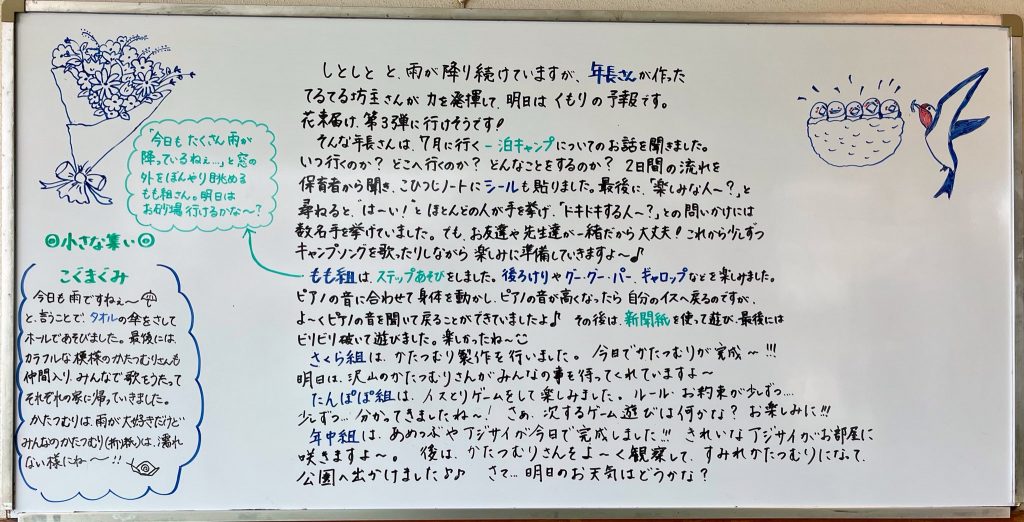 しとしと と、雨が降り続けていますが、年長さんが作った
てるてる坊主さんが力を発揮して、明日はくもりの予報です。
花束届け、第3弾に行けそうです!
そんな年長さんは、7月に行く一泊キャンプについてのお話を聞きました。
いつ行くのか? どこへ行くのか? どんなことをするのか? 2日間の流れを
保育者から聞き、こひつじノートにシールも貼りました。最後に、"楽しみな人〜?"と
尋ねると、"は〜い!"とほとんどの人が手を挙げ、「ドキドキする人〜?」との問いかけには
数名手を挙げていました。でも、お友達や先生達が一緒だから大丈夫! これから少しずつ
キャンプソングを歌ったりしながら楽しみに準備していきますよ〜♪
もも組は、ステップあそびをしました。後ろけりやグー・グー・パー、ギャロップなどを楽しみました。
ピアノの音に合わせて身体を動かし、ピアノの音が高くなったら自分のイスへ戻るのですが、
よ〜くピアノの音を聞いて戻ることができていましたよ♪ その後は、新聞紙を使って遊び、最後には
ビリビリ破いて遊びました。楽しかったね〜
さくら組は、かたつむり製作を行いました。今日でかたつむりが完成〜!!!
明日は、沢山のかたつむりさんがみんなの事を待ってくれていますよ〜
たんぽぽ組は、イスとりゲームをして楽しみました。ルール・お約束が少しずつ....
少しずつ...分かってきましたね〜! さぁ、次するゲーム遊びは何かな? お楽しみに!!!
年中組は、あめつぶやアジサイが今日で完成しました!!! きれいなアジサイがお部屋に
咲きますよ〜。 後は、かたつむりさんをよ〜く観察して、すみれかたつむりになって、
公園へ出かけました♪♪ さて...明日のお天気はどうかな?
「今日もたくさん雨が
降っているねぇ...」と窓の
外をぼんやり眺める
もも組さん。明日は
お砂場行けるかな〜?
◎小さな集い◎
こぐまぐみ
今日も雨ですねぇ〜
と、言うことで、タオルの傘をさして
ホールであそびました。最後には、
カラフルな模様のかたつむりさんも
仲間入り、みんなで歌をうたって
それぞれの家に帰っていきました。
かたつむりは、雨が大好きだけど
みんなのかたつむり(折り紙)は、濡れ
ない様にね〜!!